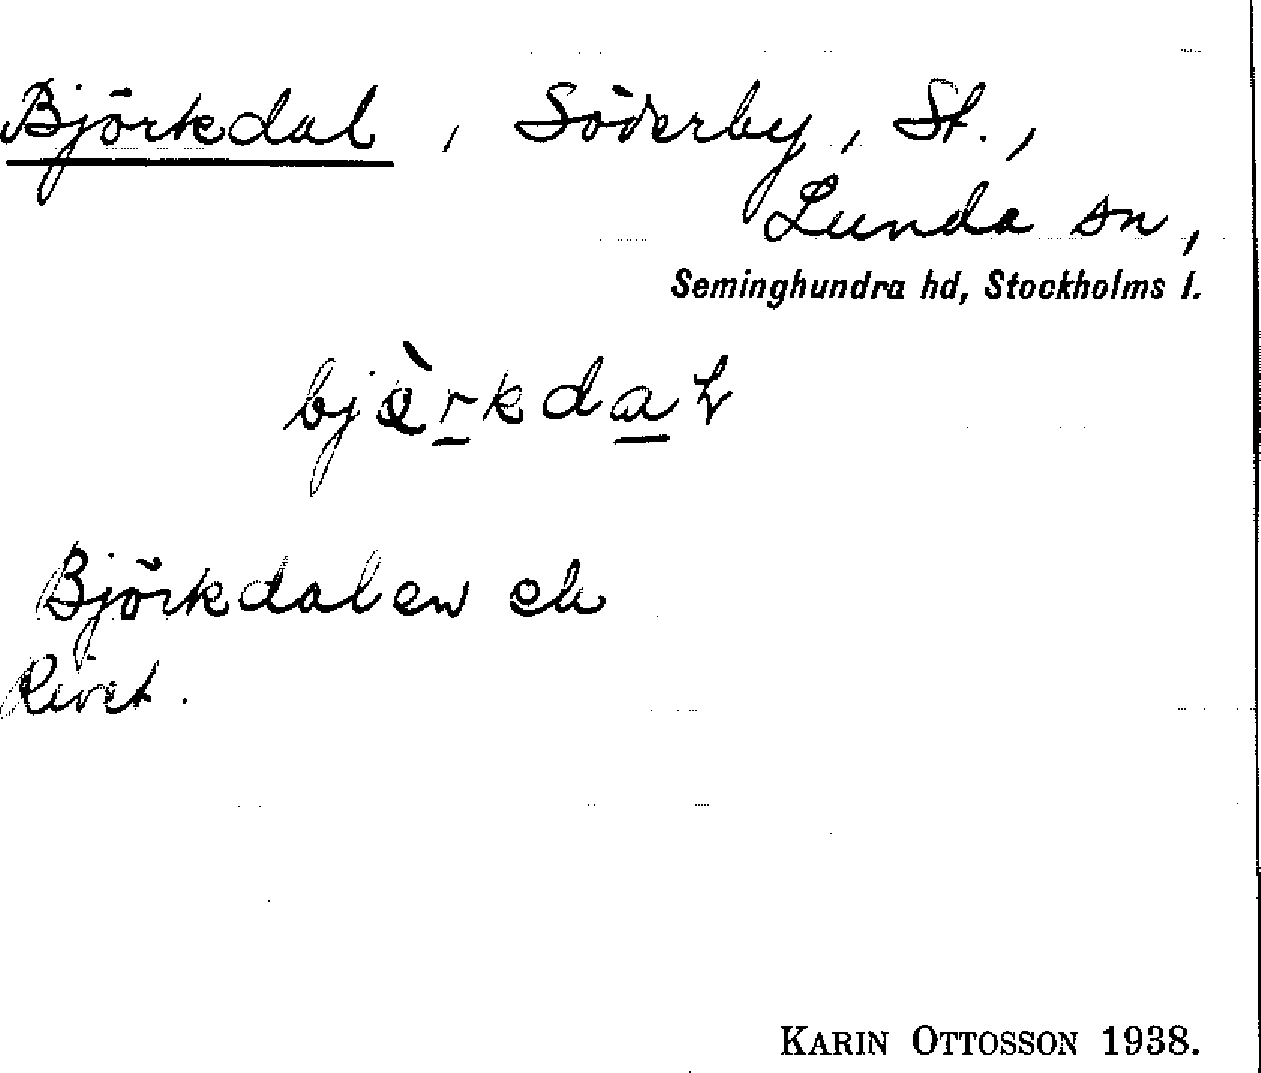 Björkdal, Söderby, St.,
Lunda sn,
Seminghundra hd, Stockholms l.
Björkdalen ek
Rivet.
KARIN OTTOSSON 1938.